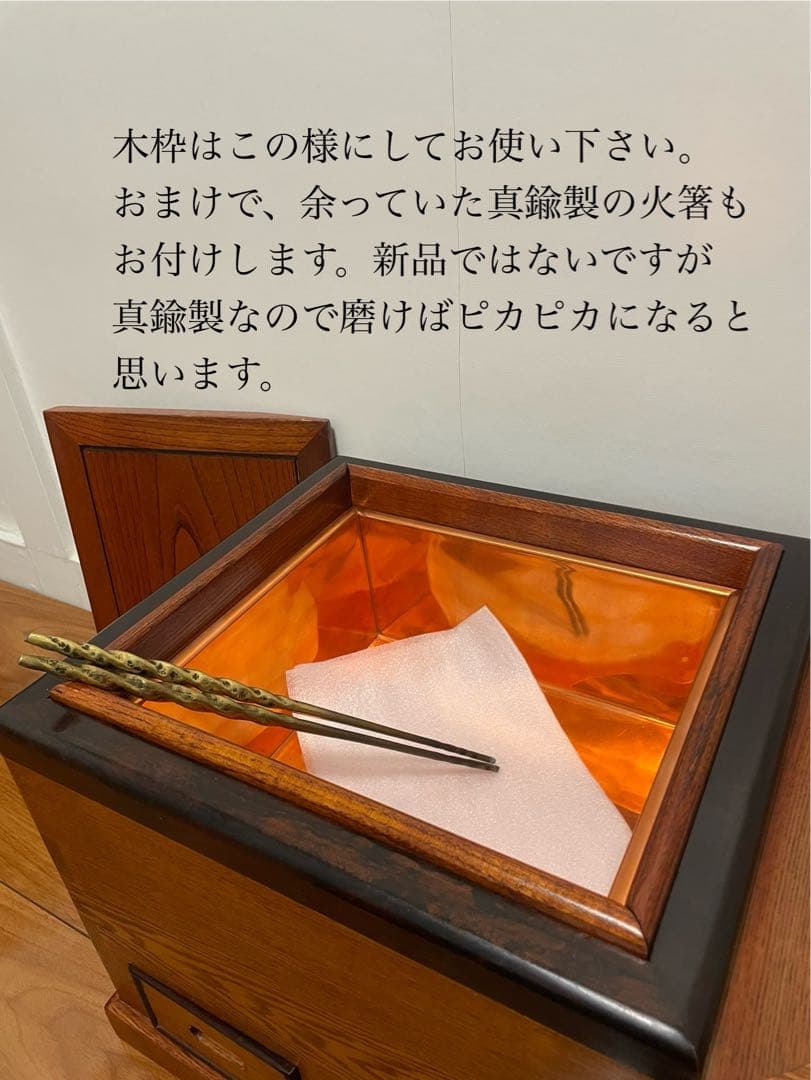 木枠はこの様にしてお使い下さい。
おまけで、余っていた真鍮製の火箸も
お付けします。新品ではないですが
真鍮製なので磨けばピカピカになると
思います。